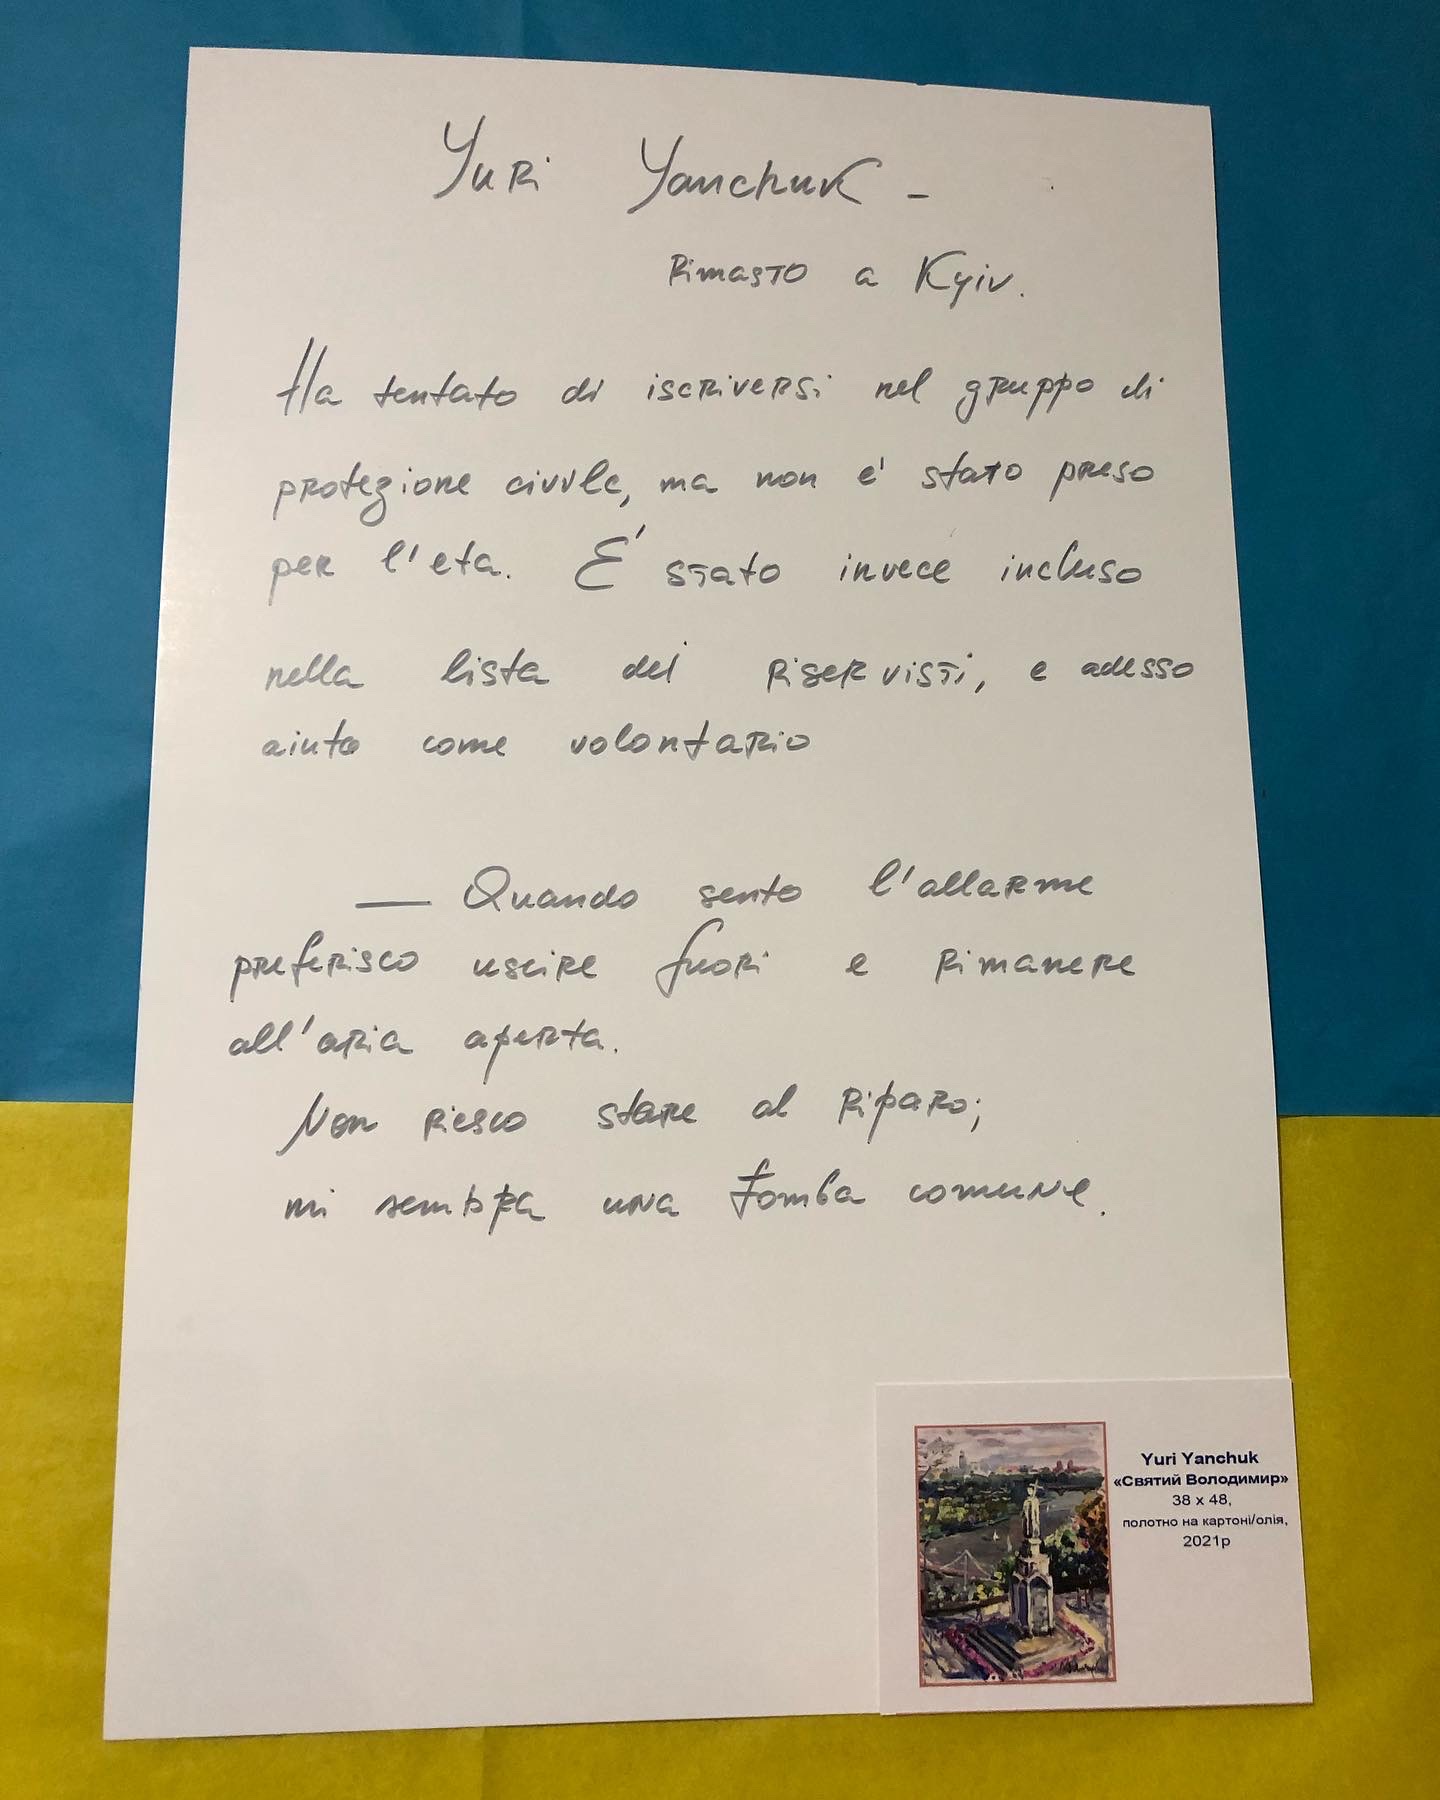 Yuri Yanchuk –
Rimasto a Kyiv.
Ha tentato di iscriversi nel gruppo di
protezione civile, ma non é stato preso
per l'eta. É stato invece incluso
nella lista dei riservisti, e adesso
aiuta come volontario
— Quando sento l'allarme
preferisco uscire fuori e rimanere
all'aria aperta.
Non riesco stare al riparo;
mi sembra una tomba comune.
Yuri Yanchuk
«Святий Володимир»
38 x 48,
полотно на картоні/олія,
2021р